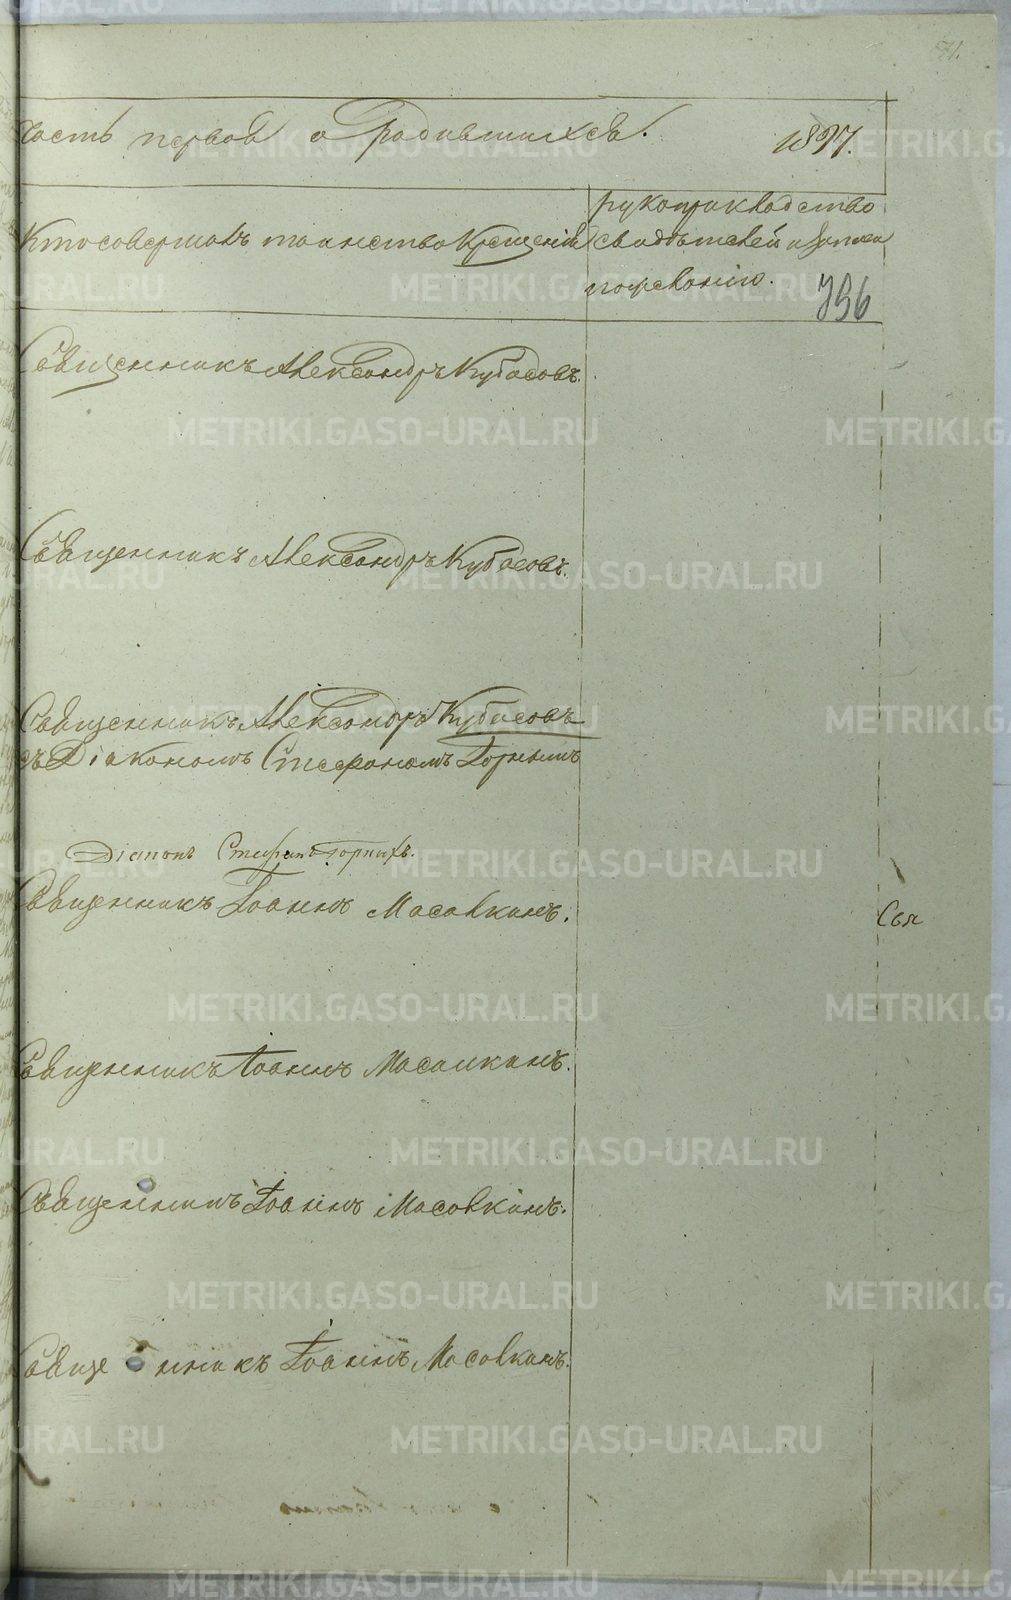 71.
часть первая о Родившихся. 1897.
Кто совершалъ таинство Крещенія
рукоприкладство
свидѣтелей
пожеланію.
796
Священникъ Александръ Кубасовъ.
Священникъ Александръ Кубасовъ.
Священникъ Александръ Кубасовъ
съ Діакономъ Стефаномъ Горнымъ
Діаконъ Стефанъ Горныхъ.
Священникъ Іоаннъ Масалкинъ.
Священникъ Іоаннъ Масалкинъ.
Священникъ Іоаннъ Масалкинъ.
Священникъ Іоаннъ Масалкинъ.
METRIKI.GASO-URAL.RU